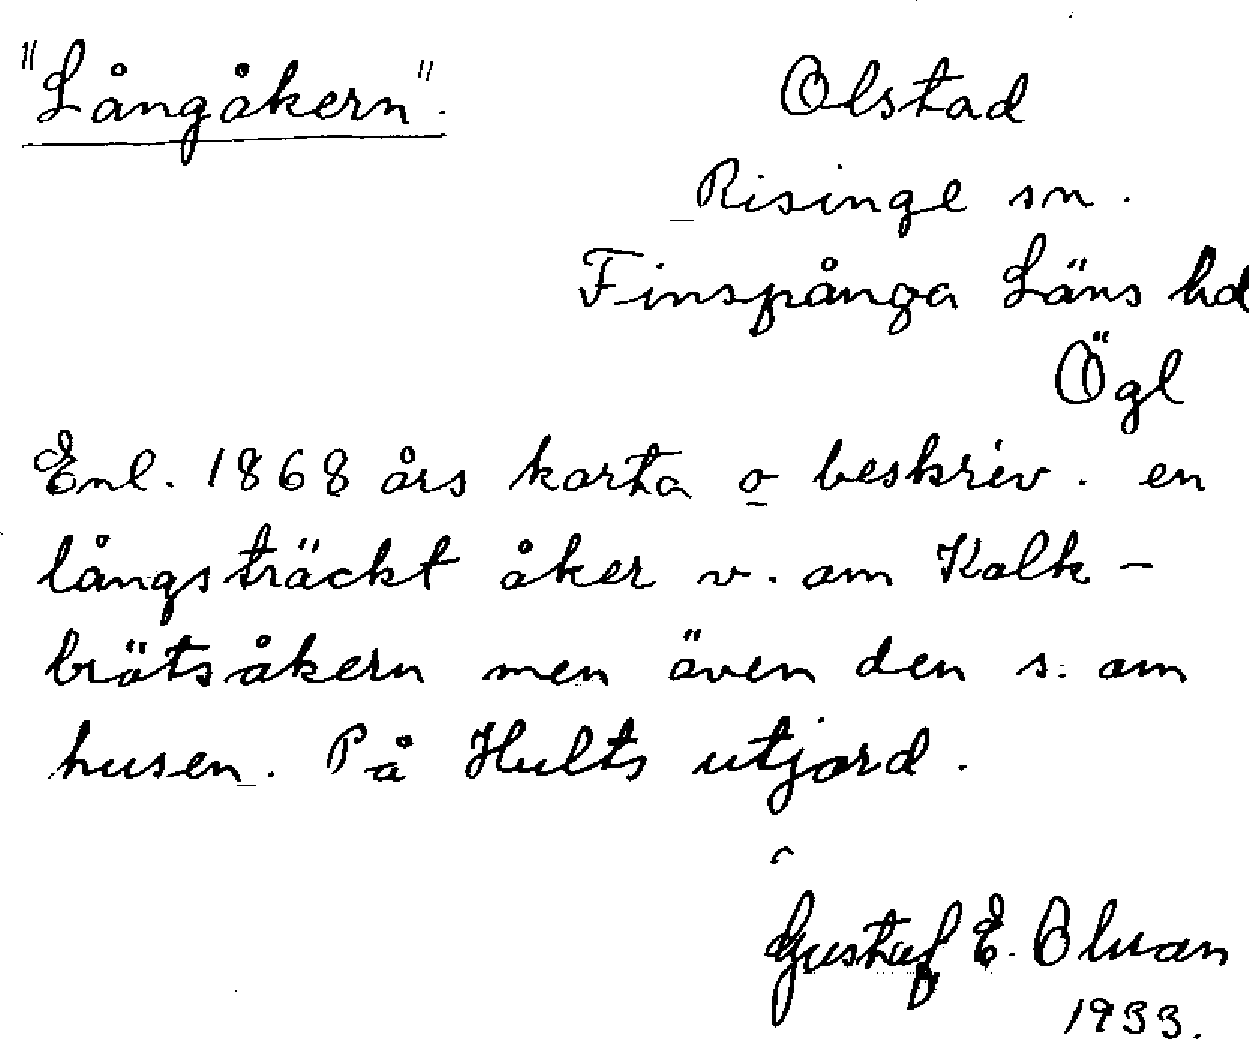 "Långåkern".
Olstad
Risinge sn.
Finspånga Läns hd
Ögl
Enl. 1868 års karta o beskriv. en
långsträckt åker v. om Kalk-
brötsåkern men även den s. om
husen. På Hults utjord.
Gustaf E.
1933.